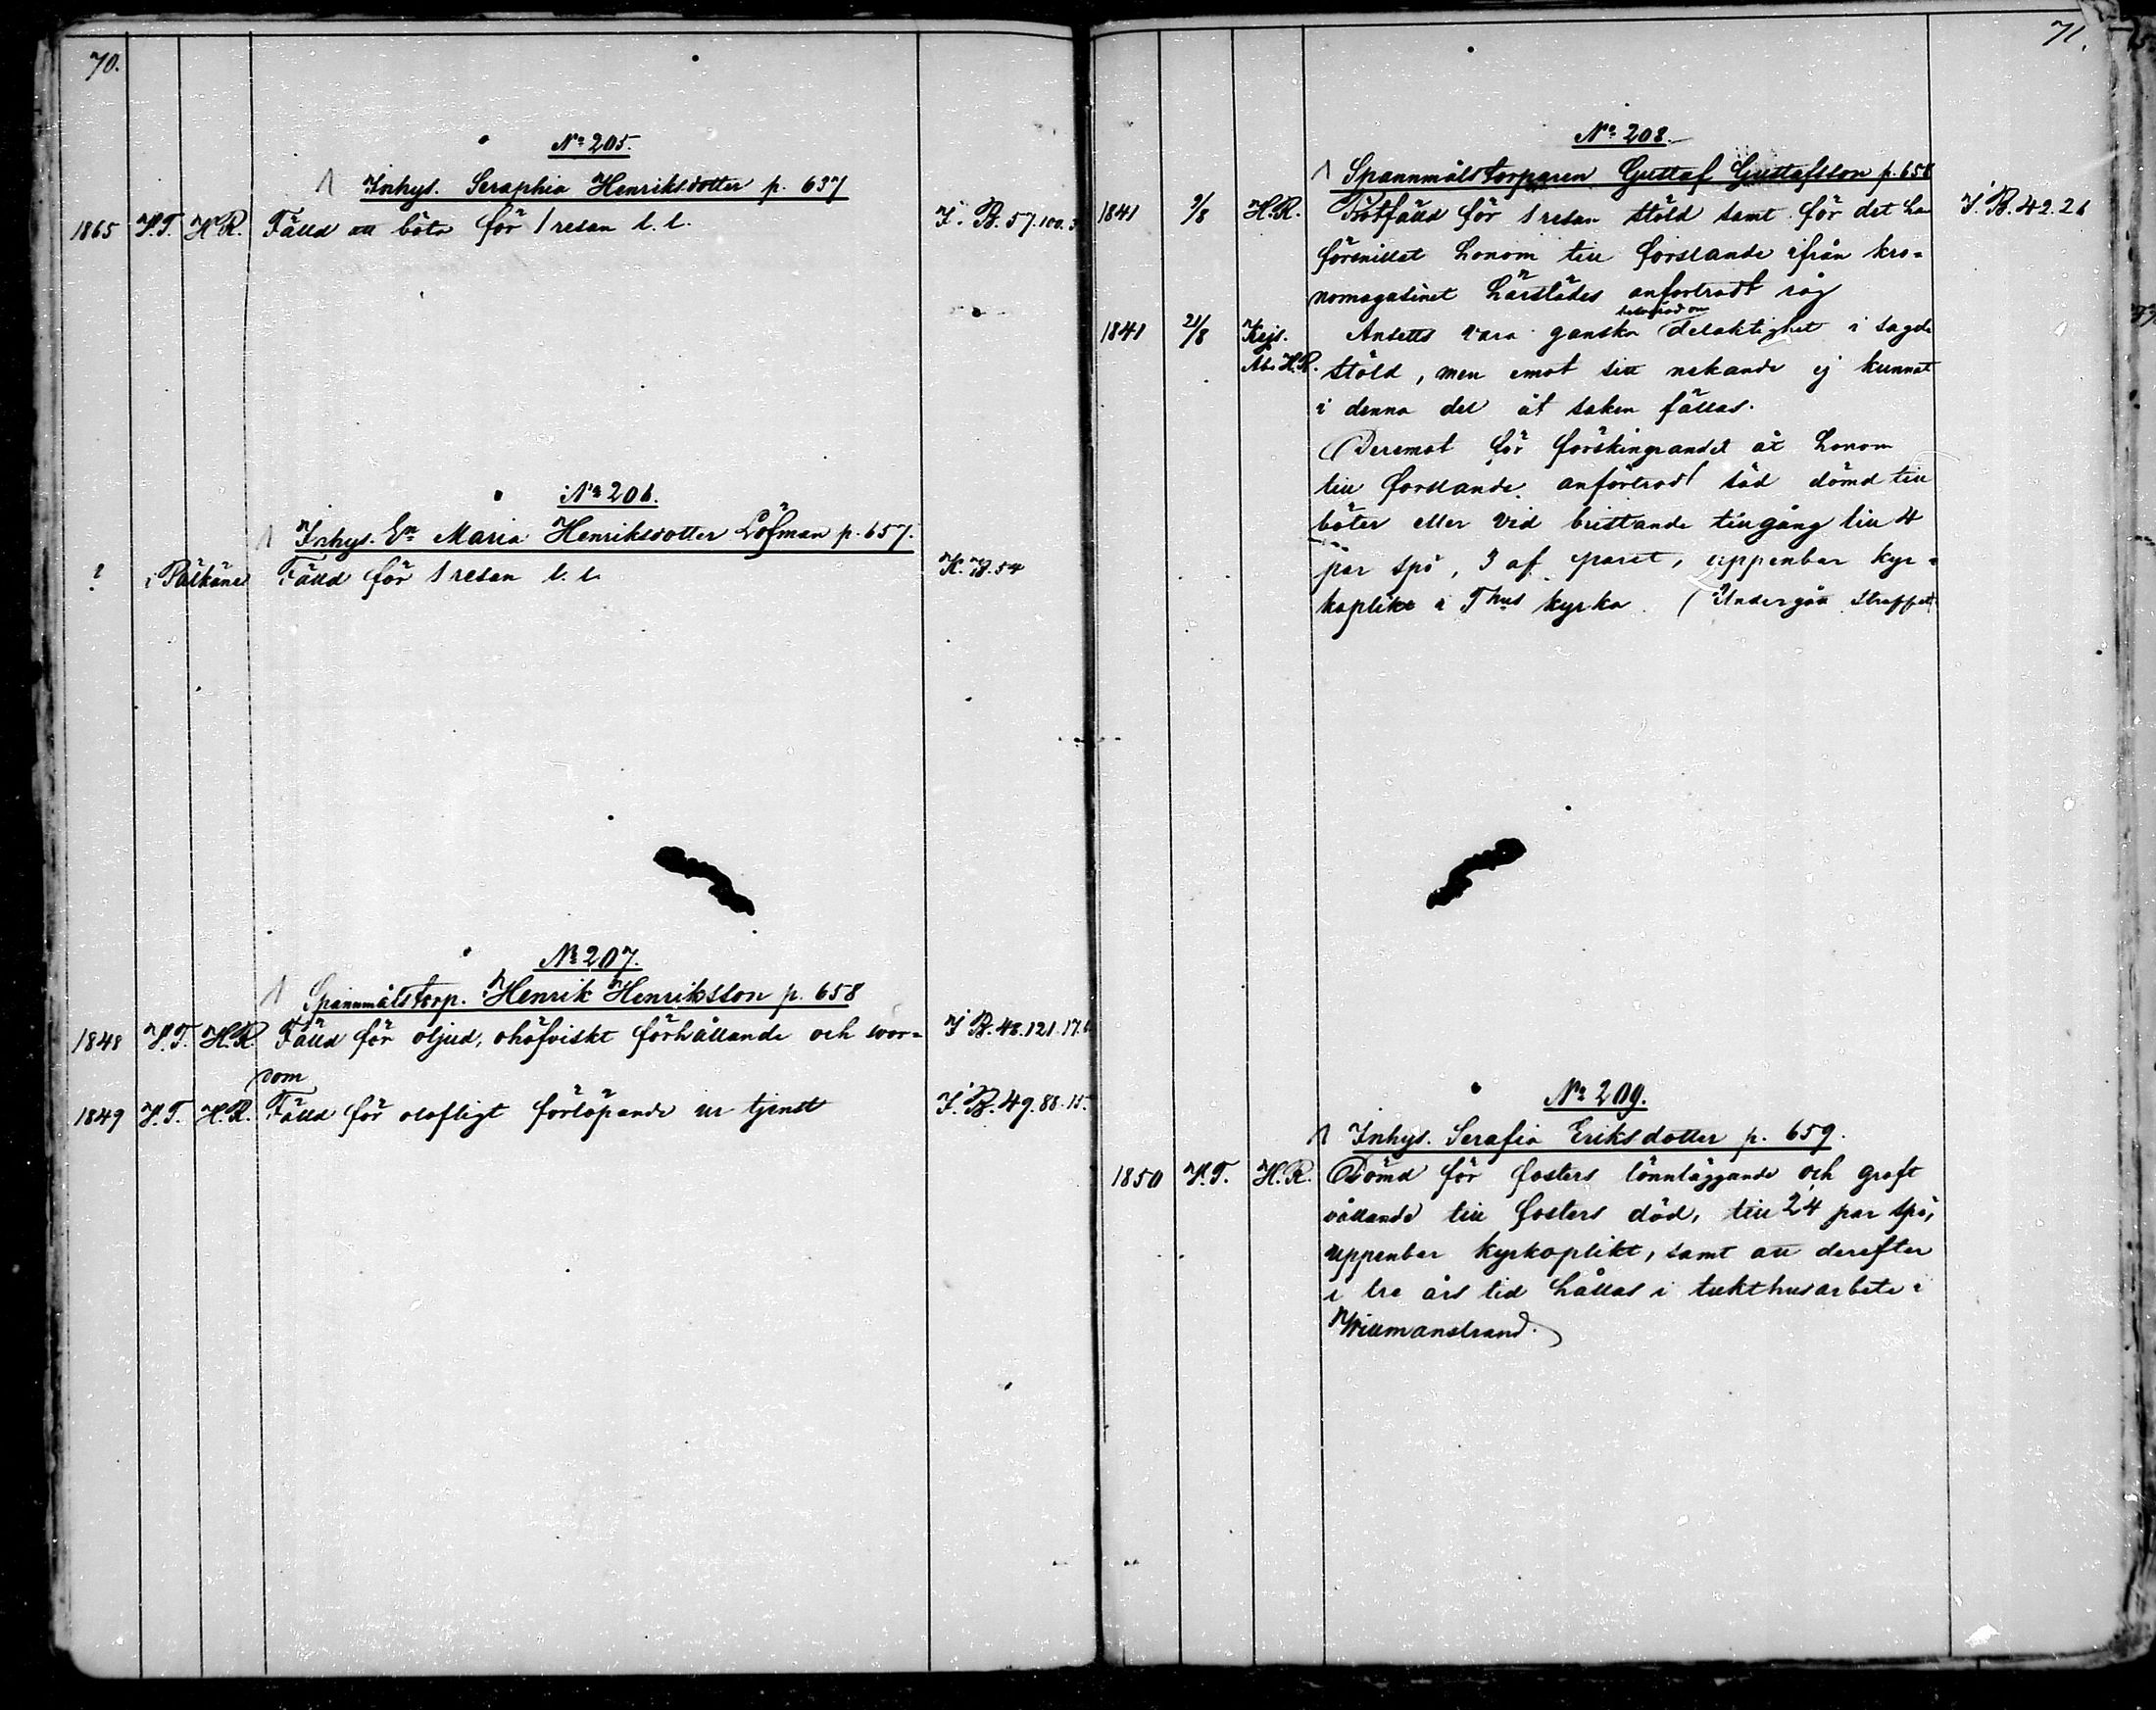 70.
No 205.
Inhys. Seraphia Henriksdotter p. 637
1865 H.T. H.R. Fälld att böta för 1 resan l. l. I. B. 57. 100. 3
No 206.
Inhys. En Maria Henriksdotter Löfman p. 657.
? i Pälkäne Fälld för 1 resan l. l. K. B. 54
No 207.
Spannmålstorp. Henrik Henriksson p. 658
1848 H.T. H.R. Fälld för oljud, ohöfviskt förhållande och svor- I B. 48. 121. 17.
dom
1849 H.T. H.R. Fälld för olofligt förlöpande ur tjenst I. B. 49. 88. 15.
71.
No 208.
Spannmålstorparen Gustaf Gustafsson p. 658
1841 9/8 H.R. Botfälld för 1 resan stöld samt för det ha I. B. 42. 26
förskillat honom till forslande ifrån kro-
nomagasinet härstädes anfortrodt råg
1841 21/8 Kejs. Ansetts vara ganska delaktighet i sagde
Åbo H.R. stöld, men emot sitt nekande ej kunnat
i denna del åt saken fällas.
Deremot för förskingrandet åt honom
till forslande anförtrodt säd dömd till
böter eller vid bristande tillgång till 4
par spö, 3 af paret, uppenbar kyr-
koplikt i Thus kyrka. (Undergått straffet
No 209.
Inhys. Serafia Eriksdotter p. 659.
1850 H.T. H.R. Dömd för fosters lönnläggande och groft
vållande till fosters död, till 24 par spö,
uppenbar kyrkoplikt, samt att derefter
i tre års tid hållas i tukthusarbete i
Willmanstrand.